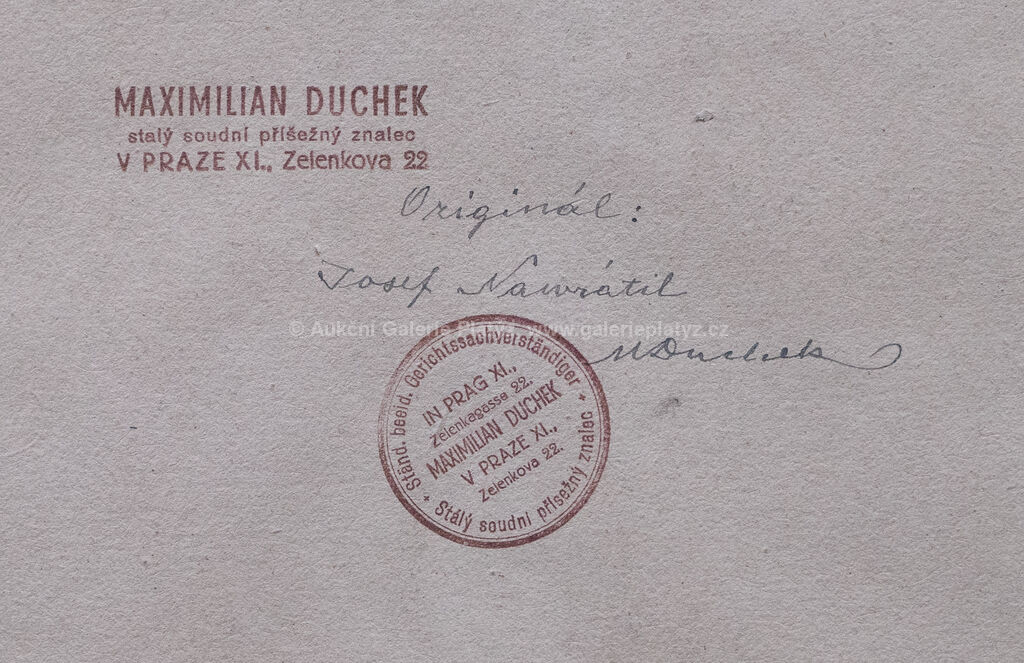 MAXIMILIAN DUCHEK
stalý soudní příšežný znalec
V PRAZE XI., Zelenkova 22
Originál:
Josef Nawrátil
© Aukční Galerie Platýz, www.galerieplatyz.cz
MDuchek
+ Ständ. beeid. Gerichtssachverständiger +
IN PRAG XI.,
Zelenkagasse 22.
MAXIMILIAN DUCHEK
V PRAZE XI.,
Zelenkova 22.
Stálý soudní přísežný znalec